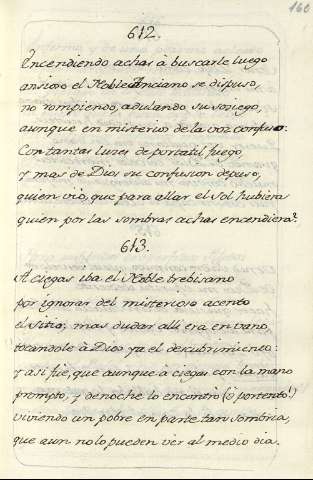 160
612.
Encendiendo achas à buscarle luego
ansioso el Noble Anciano se dispuso,
no rompiendo, adulando su sosiego,
aunque en misterio de la voz confuso:
Con tantas luces de portatil fuego,
y mas de Dios su confusion depuso,
quien vió, que para allar el sol hubiera
quien por las sombras achas encendiera?
613.
A ciegas iba el Noble trebisano
por ignorar del misterioso acento
el sitio; mas dudar alli era en vano,
tocandole à Dios ya el descubrimiento:
y asi fue, que aunque à ciegas con la mano
prompto, y de noche lo encontró (ò portento!)
viviendo un pobre en parte tan sombria,
que aun no lo pueden vér al medio dia.